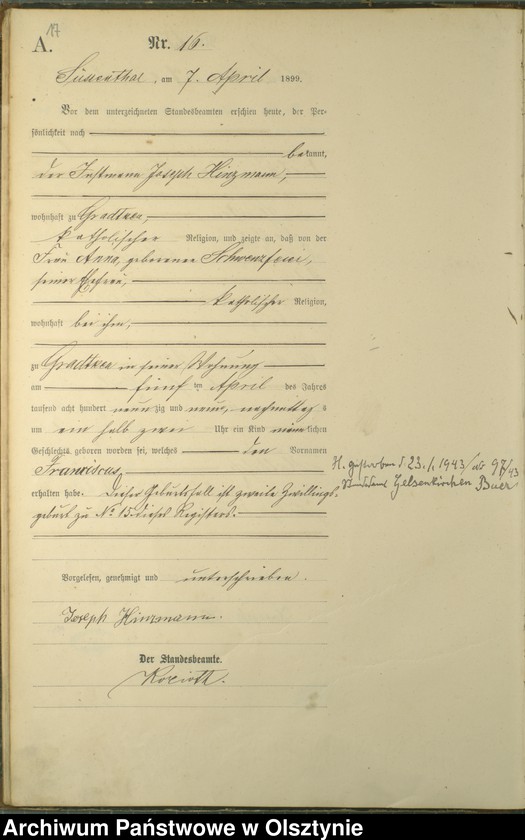 17
A.
Nr. 16.
Süssenthal, am 7. April 1899.
Vor dem unterzeichneten Standesbeamten erschien heute, der Per-
sönlichkeit nach
bekannt,
der Instmann Joseph Hinzmann,
wohnhaft zu Gradtken,
katholischer Religion, und zeigte an, daß von der
Frau Anna, geborenen Schwenzfeuer,
seiner Ehefrau,
katholischer Religion,
wohnhaft bei ihm,
zu Gradtken in seiner Wohnung
am fünf ten April des Jahres
tausend acht hundert neun zig und neun, nachmittag s
um ein halb zwei Uhr ein Kind männlichen
Geschlechts geboren worden sei, welches den Vornamen
Franciscus
erhalten habe. Dieser Geburtsfall ist zweite Zwillings-
geburt zu No 15 dieses Registers.
H. gestorben 23.1.1943 97/43
Standesamt Gelsenkirchen Buer
Vorgelesen, genehmigt und unterschrieben.
Joseph Hinzmann.
Der Standesbeamte.
Archiwum Państwowe w Olsztynie